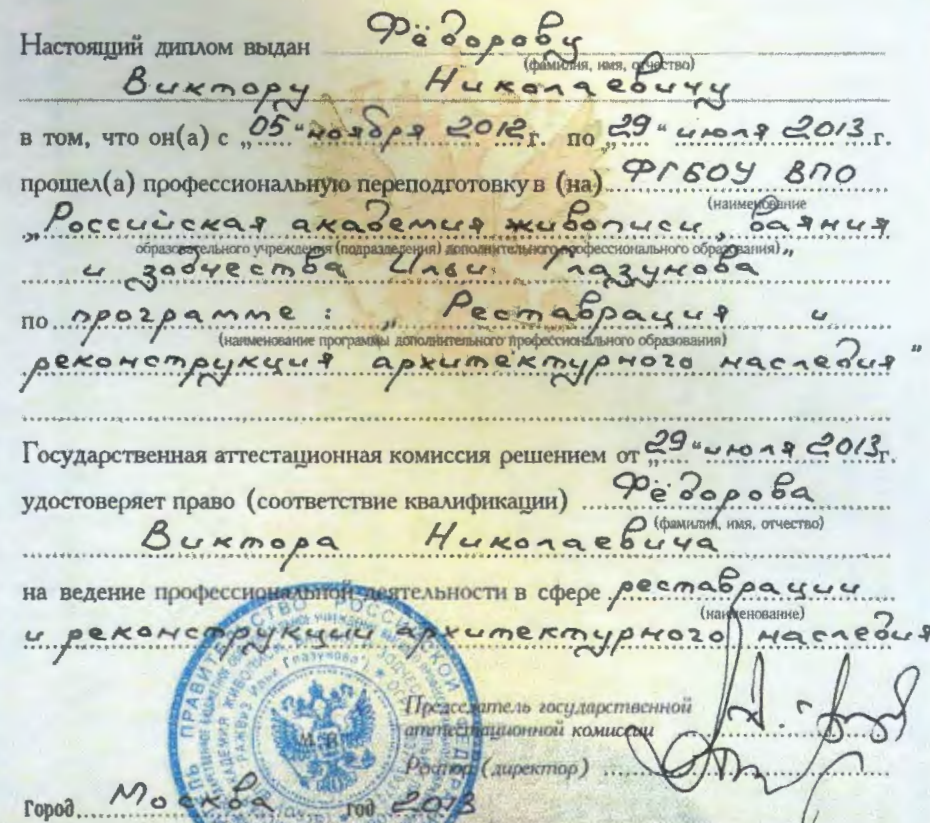 Настоящий диплом выдан Фёдорову
(фамилия, имя, отчество)
Виктору Николаевичу
в том, что он(а) с „05" ноября 2012 г. по „29" июля 2013 г.
прошел(а) профессиональную переподготовку в (на) ФГБОУ ВПО
(наименование
„Российская академия живописи, ваяния
образовательного учреждения (подразделения) дополнительного профессионального образования)
и зодчества Ильи Глазунова"
по программе : „Реставрация и
(наименование программы дополнительного профессионального образования)
реконструкция архитектурного наследия"
Государственная аттестационная комиссия решением от „29" июля 2013 г.
удостоверяет право (соответствие квалификации) Фёдорова
(фамилия, имя, отчество)
Виктора Николаевича
на ведение профессиональной деятельности в сфере реставрации
(наименование)
и реконструкции архитектурного наследия
Председатель государственной
аттестационной комиссии
Ректор (директор)
М.П.
Город Москва год 2013